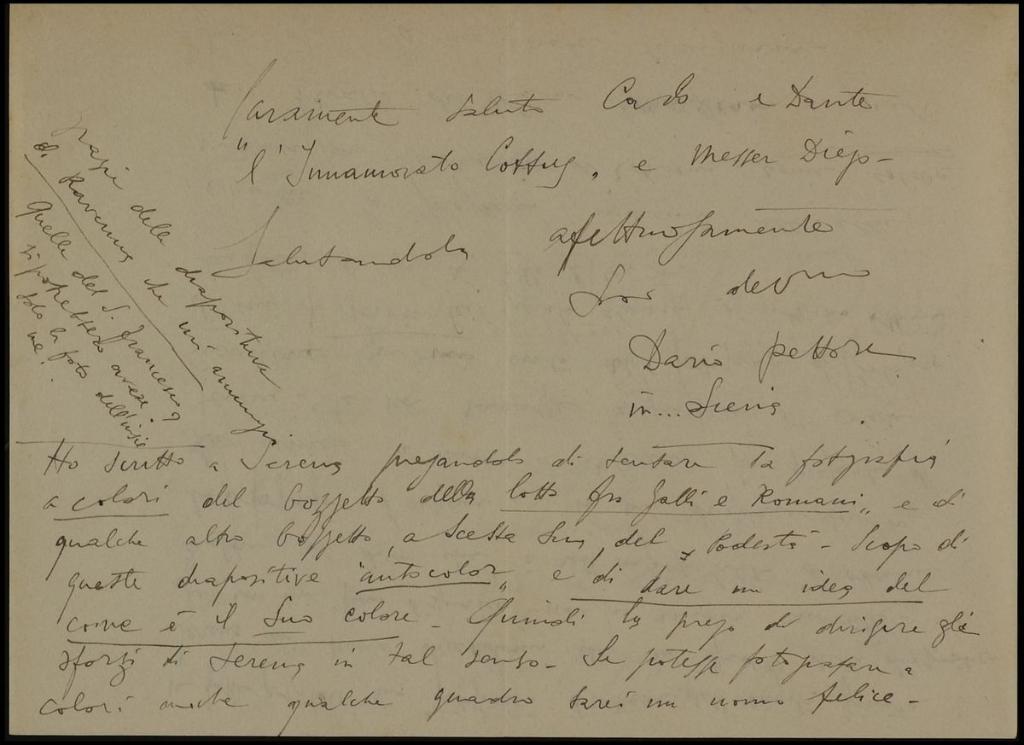 Caramente saluto Carlo e Dante
"l'Innamorato Cottus" e Messer Diego -
Salutandola affettuosamente
Suo devmo
Dario Pettore
in... Siena
Grazie delle diapositive
di Ravenna che mi annunzia
Quelle del S. Francesco
si potrebbero avere?
solo la foto dell'insie
me!
Ho scritto a Serena pregandola di tentare la fotografia
a colori del bozzetto della lotta fra Galli e Romani" e di
qualche altro bozzetto, a scelta Sua, del "Podestà - Scopo di
queste diapositive "autocolor" e di dare un idea del
come è il Suo colore - Quindi la prego di dirigere gli
sforzi di Serena in tal senso - Se potesse fotografare a
colori anche qualche quadro sarei un uomo felice -